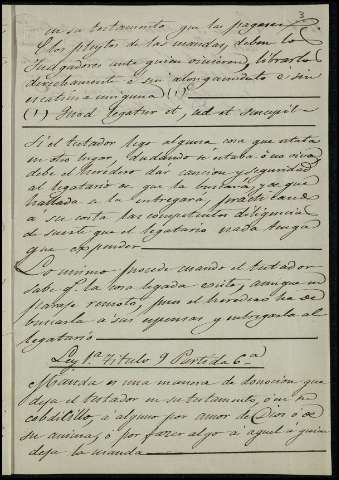 3
en su testamento que las pagasen
E los pleytos de las mandas, deben los
Judgadores ante quien vinieren, librarlos
derechamente e sin alongamiento e sin
escatima ninguna (1)
(1)
Si el testador lego alguna cosa que estaba
en otro lugar, dudando si estaba ó no viva,
debe el heredero dar caucion y seguridad
al legatario de que la buscará, y de que
hallada se la entregará, practicando
á su costa las competentes diligencias
de suerte que el legatario nada tenga
que expender
Lo mismo procede cuando el testador
sabe qe. la cosa legada existe, aunque en
parage remoto, pues el heredero ha de
buscarla á sus expensas y entregarla al
legatario
Ley 1.ª Titulo 9 Partida 6.ª
Manda es una manera de donacion que
deja el testador en su testamento, ó en
cobdicillo, á alguno por amor de Dios ó de
su anima, ó por fazer algo á aquel á quien
deja la manda